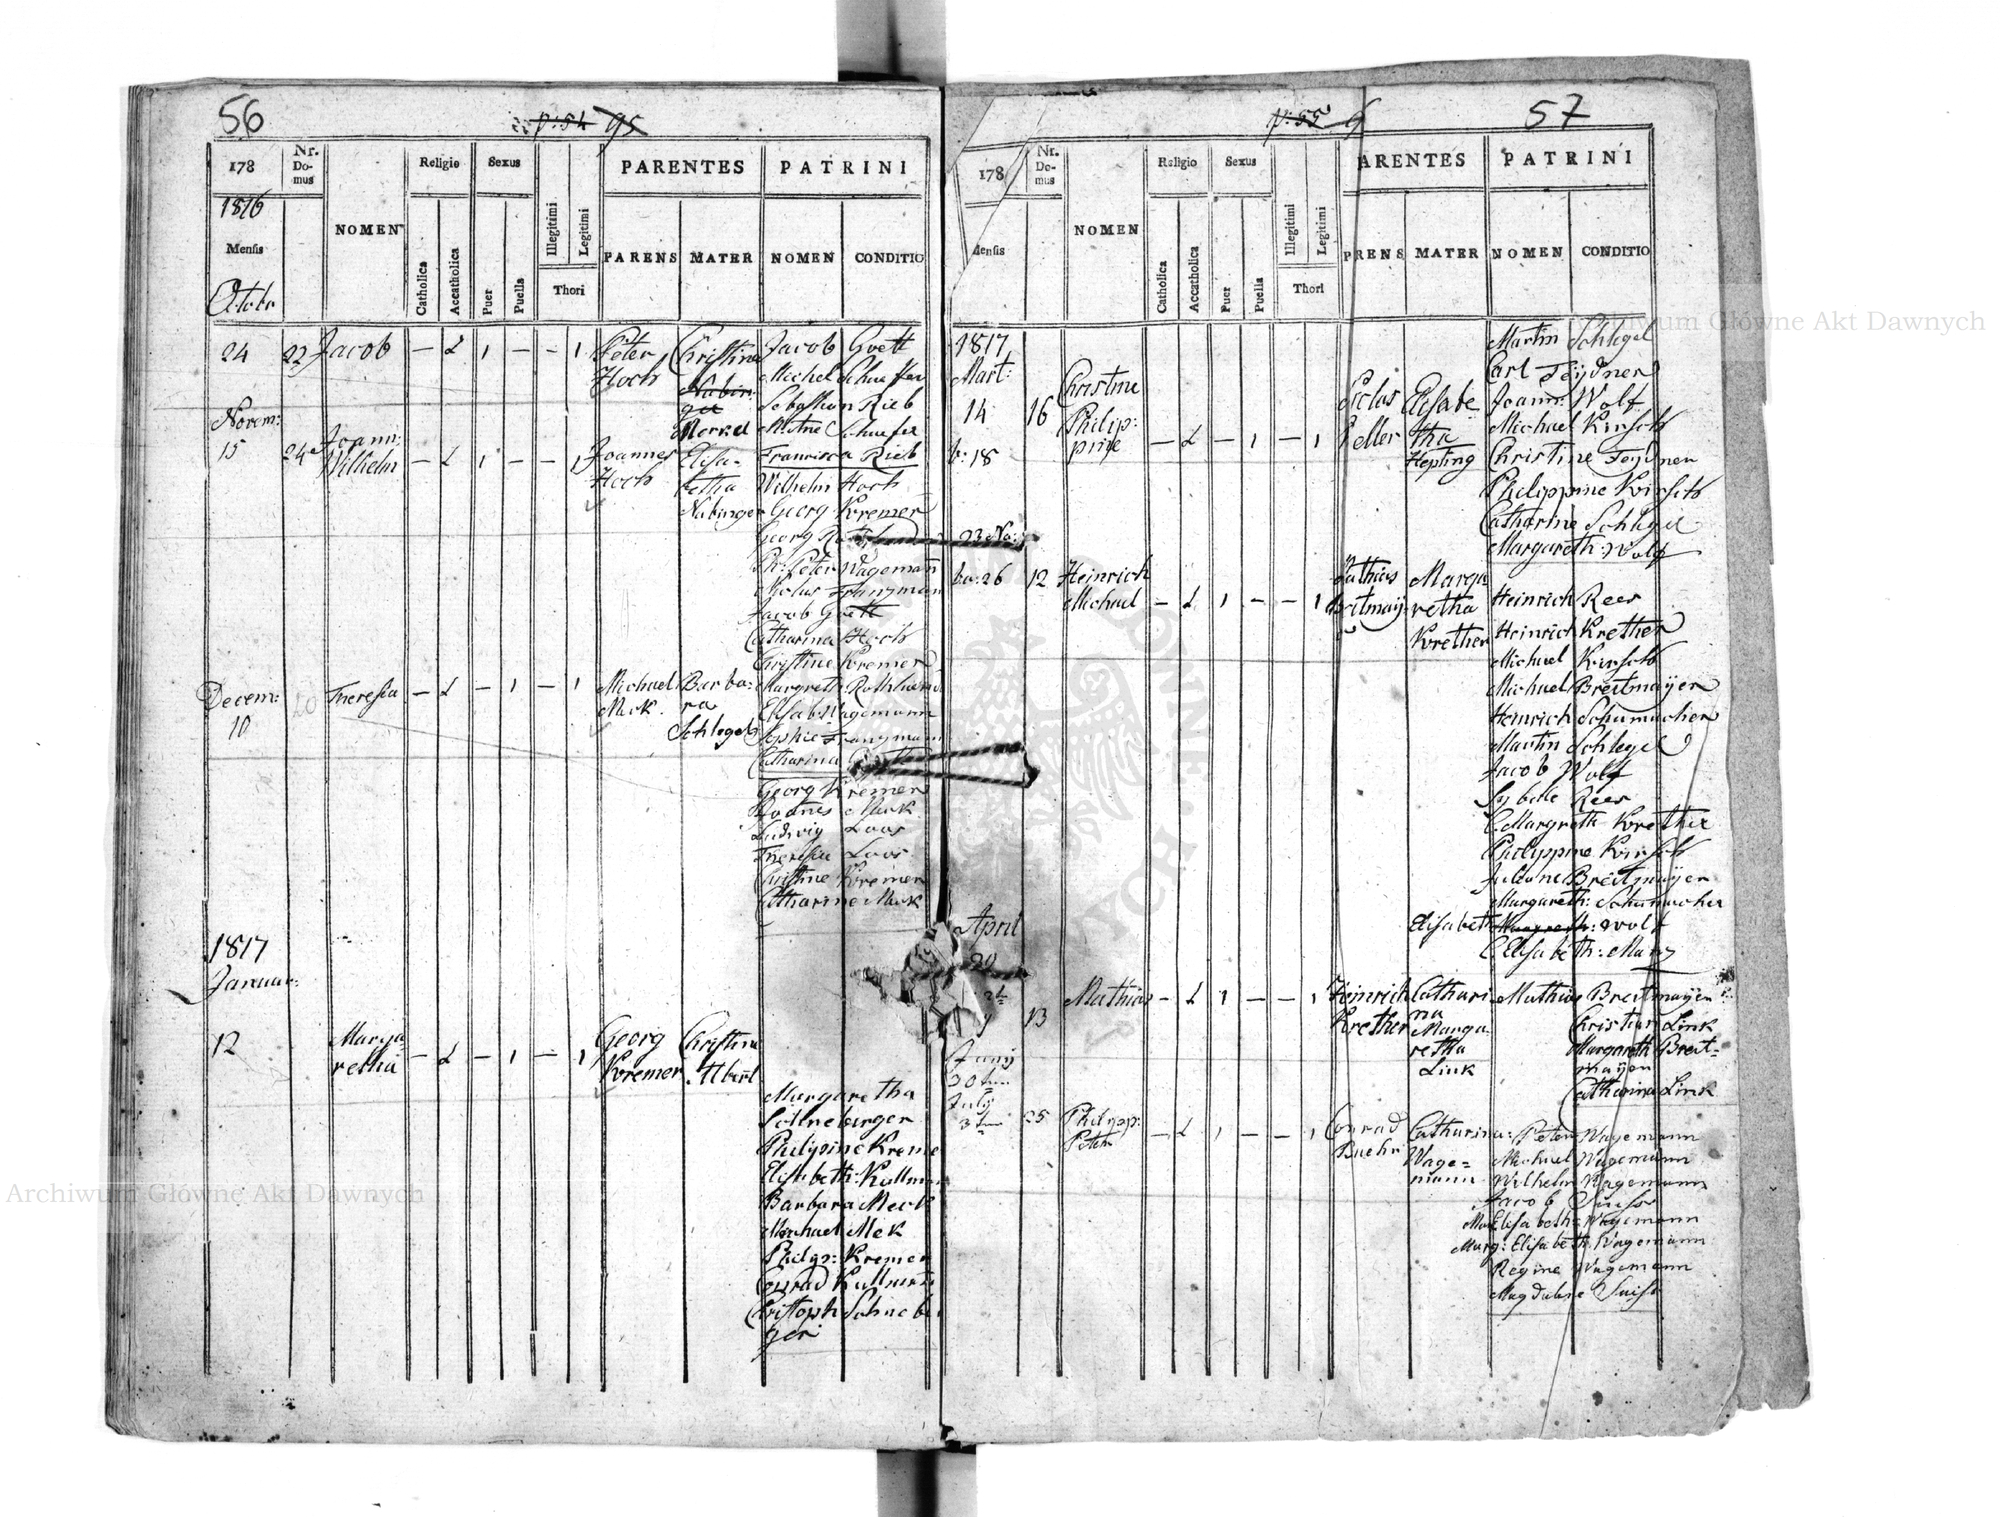 56
p: 54 95
178
1816
Mensis
Octobr
Nr. Do-mus
NOMEN
Religio
Catholica
Accatholica
Sexus
Puer
Puella
Illegitimi
Legitimi
Thori
PARENTES
PARENS
MATER
PATRINI
NOMEN
CONDITIO
24 22 Jacob – L 1 – – 1
Peter
Hoch
Christina
Nabin-
ger
Merkel
Jacob Gvett
Michel Schaeffer
Sebastian Rieb
Schaefer
Francisca Rieb
Novem:
15 24 Joann:
Wilhelm – L 1 – – 1
Joannes
Hoch
Elisa-
betha
Nabinger
Wilhelm Hoch
Georg Kremer
Georg
Ph: Peter Wageman
Nicolus Franzman
Jacob Gvett
Catharina Hoch
Christine Kremer
Margreth
Elisab Wagemann
Sophie Franzmann
Catharina
Decem:
10 20 Theresia – L – 1 – 1
Michael
Meck.
Barba-
ra
Schlegel
Georg Kremer
Joanes Meck
Ludwig Loos
Theresia Loos
Christine Kremer
Catharine Meck
1817
Januar:
12
Marga
retha – L – 1 – 1
Georg
Kremer
Christina
Albert
Margaretha
Schneberger
Philippine Kreme
Elisabeth: Kullman
Barbara Meck
Michael Mek
Philip: Kremer
Conrad Kullman
Cristoph Schnebe
ger
57
p: 55 9
178
Mensis
Nr. Do-mus
NOMEN
Religio
Catholica
Accatholica
Sexus
Puer
Puella
Illegitimi
Legitimi
Thori
ARENTES
PRENS
MATER
PATRINI
NOMEN
CONDITIO
1817
Mart:
14 16
b: 18
Christine
Philip:
pine – L – 1 – 1
Peller
Elisabe
tha
Hepting
Martin Schlegel
Carl Feydner
Joann: Wolf
Michael Kirsch
Christine Feydner
Philippine Kirsch
Catharine Schlegel
Margareth: Wolf
23 No:
ba: 26 12 Heinrich
Michael – L 1 – – 1
Mathias
Breitmayr
Marga
retha
Krether
Heinrich Rees
Heinrich Krether
Michael Kirsch
Michael Breitmayer
Heinrich Schumacher
Martin Schlegel
Jacob Wolf
Sybille Rees
Margreth Krether
Philyppine Kirsch
Juliane Breitmayer
Margareth: Schumacher
Elisabeth Margareth: Wolf
Elisabeth: Manz
April
20
13 Mathias – L 1 – – 1
Heinrich
Krether
Cathari
na
Marga
retha
Link
Mathias Breitmayer
Christian Link
Margareth Breit=
mayer
Catharina Link
Juny
30
July
3 25 Philipp:
Peter – L 1 – – 1
Conrad
Buehr
Catharina
Wage=
mann
Peter Wagemann
Michael Wagemann
Wilhelm Wagemann
Jacob Suess
Mar Elisabeth: Wagemann
Marg: Elisabeth Wagemann
Regine Wagemann
Magdalene Suiss
Archiwum Główne Akt Dawnych
Archiwum Główne Akt Dawnych